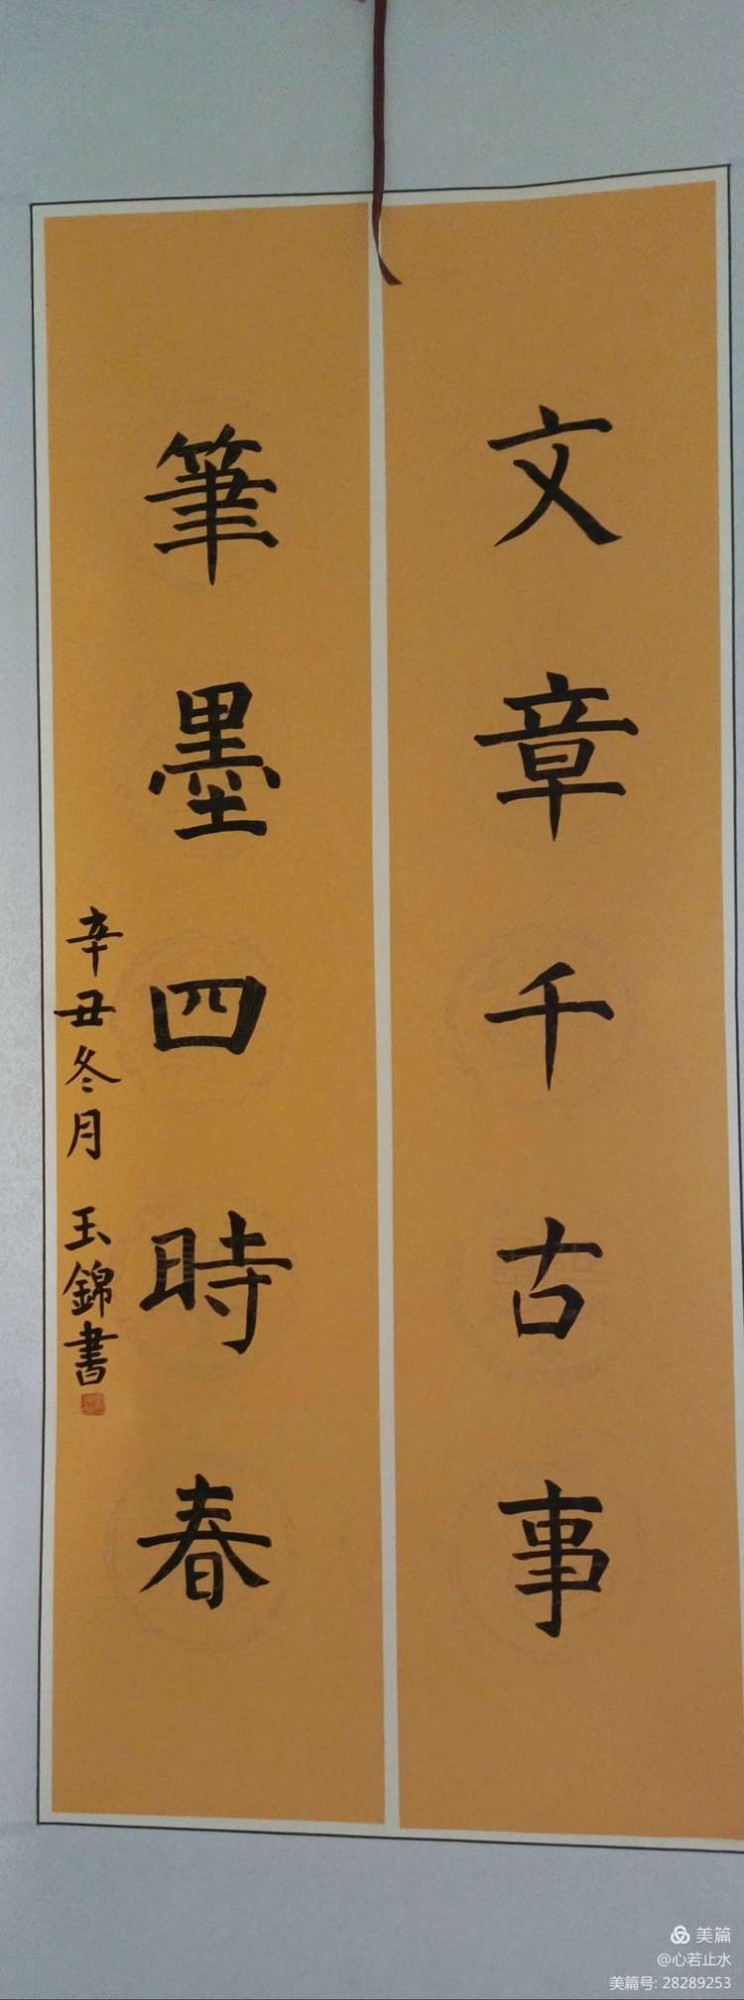 文章千古事
筆墨四時春
辛丑冬月 玉錦書
美篇
@心若止水
美篇号: 28289253